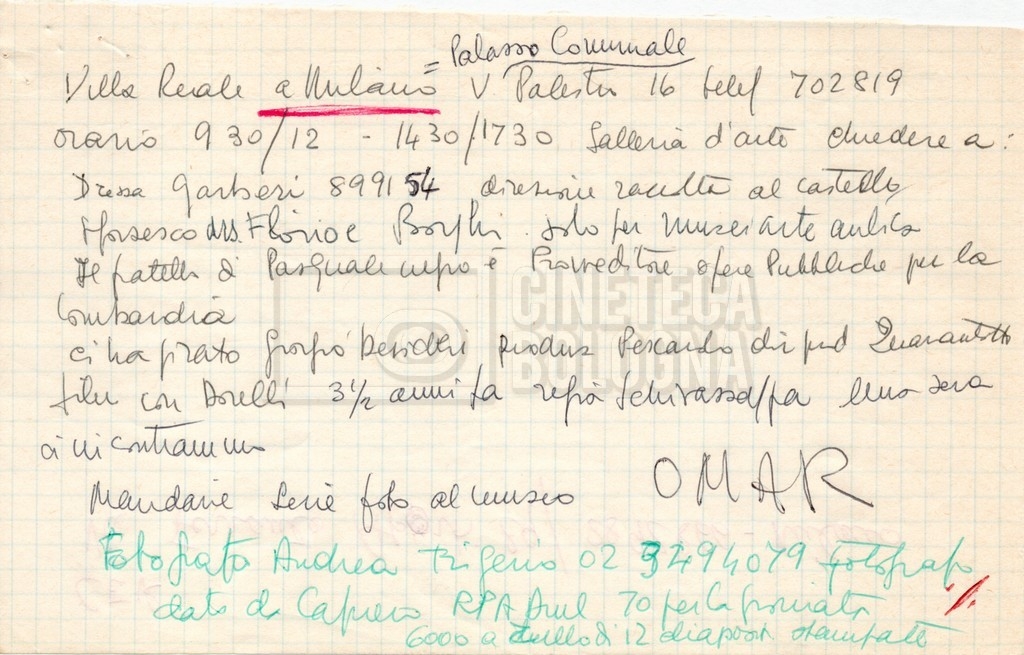 = Palazzo Comunale
Villa Reale a Milano V Palestro 16 telef 702819
orario 9 30/12 - 1430/1730 Galleria d'arte chiedere a:
Dressa Garberi 899154 direzione raccolta al castello
Sforzesco Florio e Borghi solo per musei arte antica
Il fratello di Pasquale è Provveditore opere Pubbliche per la
Lombardia
ci ha girato Giorgio Desideri produz Pescarolo dir prod Quarantotto
film con Dorelli 3½ anni fa regia Schivazappa Una sera
ci incontrammo
Mandare serie foto al museo OMAR
CINETECA
BOLOGNA
Fotografo Andrea Trigerio 02 3494079 fotografo
dato da RPA 70 per la giornata
6000 a rullo di 12 diapos stampate